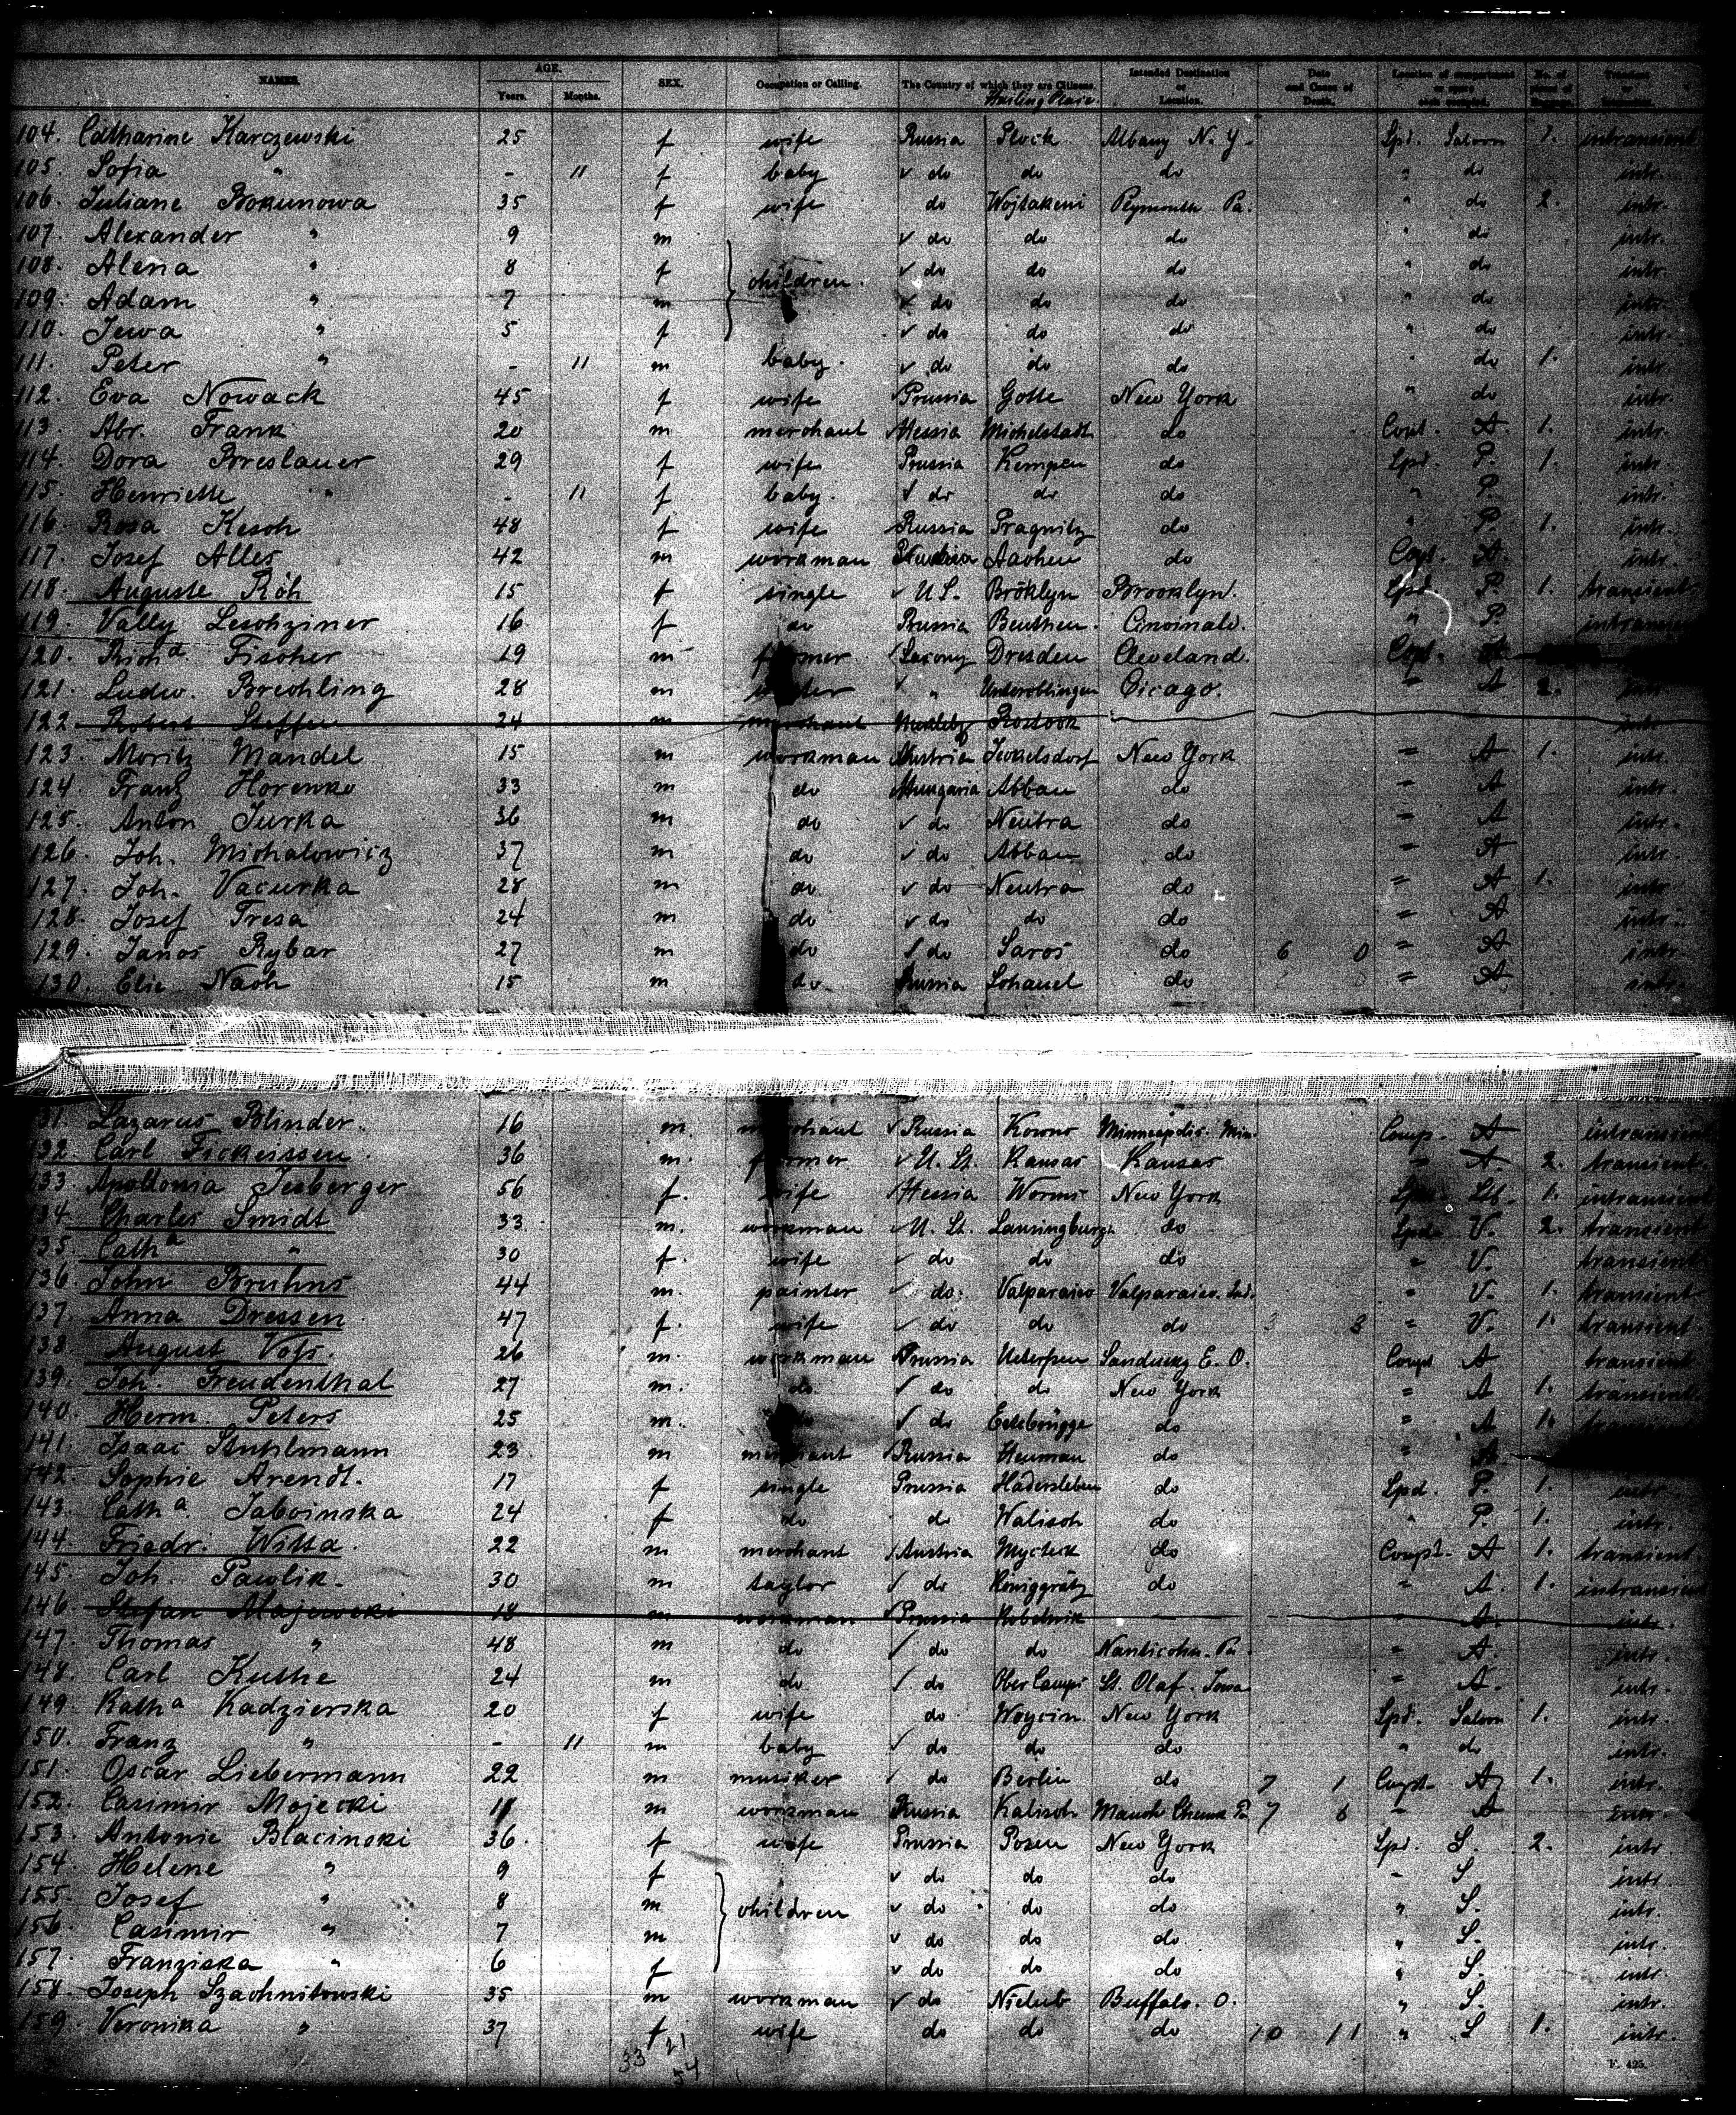 NAMES. AGE. Years. Months. SEX. Occupation or Calling. The Country of which they are Citizens. Hailing Place Intended Destination or Location. Date and Cause of Death. Location of compartment or space No. of
104. Catharine Karczewski 25 f wife Russia Plock Albany N. Y. Spd. Saloon 1. intransient
105. Sofia " - 11 f baby do do do " do intr.
106. Juliane Bokunowa 35 f wife do Wojtakeni Plymouth Pa. " do 2. intr.
107. Alexander " 9 m do do do " do intr.
108. Alena " 8 f children. do do do " do intr.
109. Adam " 7 m do do do " do intr.
110. Jewa " 5 f do do do " do intr.
111. Peter " - 11 m baby. do do do " do 1. intr.
112. Eva Nowack 45 f wife Prussia Golle New York " do intr.
113. Abr. Frank 20 m merchant Hessia Michelstadt do Cont. A. 1. intr.
114. Dora Breslauer 29 f wife Prussia Kempen do Spd. P. 1. intr.
115. Henriette " - 11 f baby. do do do " P. intr.
116. Rosa Kesch 48 f wife Russia Pragnitz do " P. 1. intr.
117. Josef Alles 42 m workman Aachen do Cpt. A. intr.
118. Auguste Röh 15 f single U.S. Bröklyn Brooklyn. Spd P. 1. transient
119. Vally Leschziner 16 f do Prussia Beuthen. Cincinati. " P.
120. Rich'd. Fischer 19 m Saxony Dresden Cleveland. Cpt. A
121. Ludw. Brechling 28 m " Unteroblingen Cicago. " A 2. intr.
122 Robert Steffen 24 m merchant Rostock intr
123. Moritz Mandel 15 m workman Austria Jeckelsdorf New York = A 1. intr.
124. Franz Horenko 33 m do Hungaria Abbau do = A intr.
125. Anton Jurka 36 m do do Neutra do = A intr.
126. Joh. Michalowicz 37 m do do Abbau do = A intr.
127. Joh. Vacurka 28 m do do Neutra do = A 1. intr
128. Josef Tresa 24 m do do do do = A intr.
129. Janos Rybar 27 m do do Saros do 6 0 = A intr.
130. Elie Nach 15 m do Russia do = A intr.
131. Lazarus Blinder. 16 m. merchant Russia Kowno Minneapolis. Min. Comp. A intransient
132. Carl Fickeissen 36 m. farmer U. St. Kansas Kansas " A. 2. transient.
133. Apollonia Jesberger 56 f. wife Hessia Worms New York 1. intransient
134. Charles Smidt 33. m. workman U. St. Lansingburgh do Spd. V. 2. transient
135. Cath'a " 30 f. wife do do do " V. transient
136. John Bruhns 44 m. painter do. Valparaiso Valparaiso. Ind. " V. 1. transient.
137. Anna Dressen 47 f. wife do do do 3 3 = V. 1. transient.
138. August Vofs. 26 m. workman Prussia Sandusky E. O. Compt A transient.
139. Joh. Freudenthal 27 m. do do do New York = A 1. transient.
140. Herm. Peters 25 m. do do " A 1.
141. Isaac Stuhlmann 23. m merchant Russia do " A
142. Sophie Arendt. 17 f single Prussia Hadersleben do Spd. P. 1. intr
143. Cath'a. Jaboinska 24 f do do Walisch do " P. 1. intr.
144. Friedr. Witta. 22 m merchant Austria do Compt. A 1. transient.
145. Joh. Pawlik. 30 m taylor do Königgrätz do " A. 1. intransient
146. Stefan Majewski 18 m workman Prussia - A. intr.
147. Thomas " 48 m do do do Nanticoke. Pa. = A. intr.
148. Carl Kuthe 24 m do do St. Olaf. Iowa = A. intr.
149. Kath'a Kadzierska 20 f wife do Woycin New York Spd. Saloon 1. intr.
150. Franz " - 11 m baby do do do " do intr.
151. Oscar Liebermann 22 m musiker do Berlin do 7 1 Cmpt. A 1. intr.
152. Casimir Majecki 11 m workman Russia Kalisch Mauch Chunk Pa 7 6 - A intr.
153. Antonie Blacinski 36. f wife Prussia Posen New York Spd. S. 2. intr.
154. Helene " 9 f do do do - S intr.
155. Josef " 8 m children do do do " S. intr.
156. Casimir " 7 m do do do. " S. intr.
157. Franziska " 6 f do do do " S. intr.
158. Joseph Szachnitowski 35 m workman do Nielub Buffalo. O. " S. intr.
159. Veronika " 37 f wife do do do 10 11 " S 1. intr.
33 21
54
F. 425.